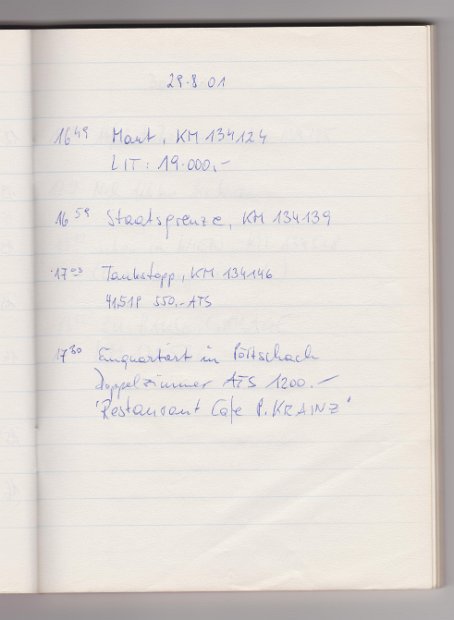 29.8.01
16⁴⁹ Maut, KM 134124
LIT: 19.000,-
16⁵⁹ Staatsgrenze, KM 134139
17⁰³ Tankstopp, KM 134146
550,- ATS
17³⁰ Einquartiert in Pörtschach
Doppelzimmer ATS 1200.-
"Restaurant Cafe P. KRAINZ"